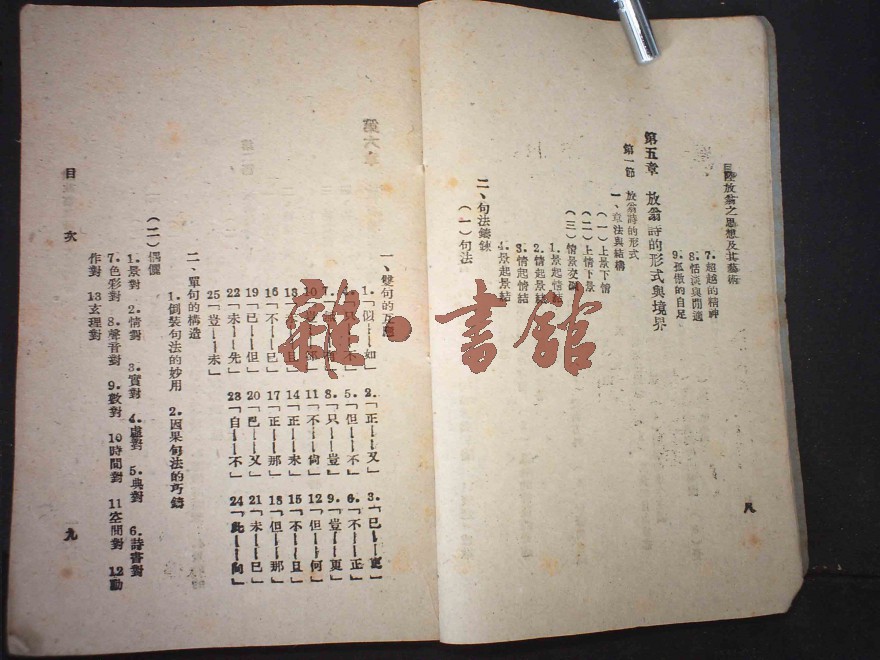 陸放翁之思想及其藝術
7.超越的精神
8.恬淡與閒適
9.孤傲的自足
第五章 放翁詩的形式與境界
第一節 放翁詩的形式
一、章法與結構
(一)上景下情
(二)上情下景
(三)情景交融
1.景起情結
2.情起景結
3.情起情結
4.景起景結
二、句法鑄鍊
(一)句法
八
一、雙句的互應
1.「似——如」 2.「正——又」 3.「已——更」
5.「但——不」 6.「不——正」
7. 8.「只——豈」 9.「豈——更」
10 11「不——尚」 12「但——何」
13 14「正——未」 15「不——且」
16「不——已」 17「正——那」 18「但——那」
19「已——但」 20「已——又」 21「未——已」
22「未——先」 23「自——不」 24「此——向」
25「豈——未」
二、單句的構造
1.倒裝句法的妙用 2.因果句法的巧鑄
(二)偶儷
1.景對 2.情對 3.實對 4.虛對 5.典對 6.詩書對
7.色彩對 8.聲音對 9.數對 10時間對 11空間對 12動
作對 13玄理對
目次
九
第六章
雜·書館